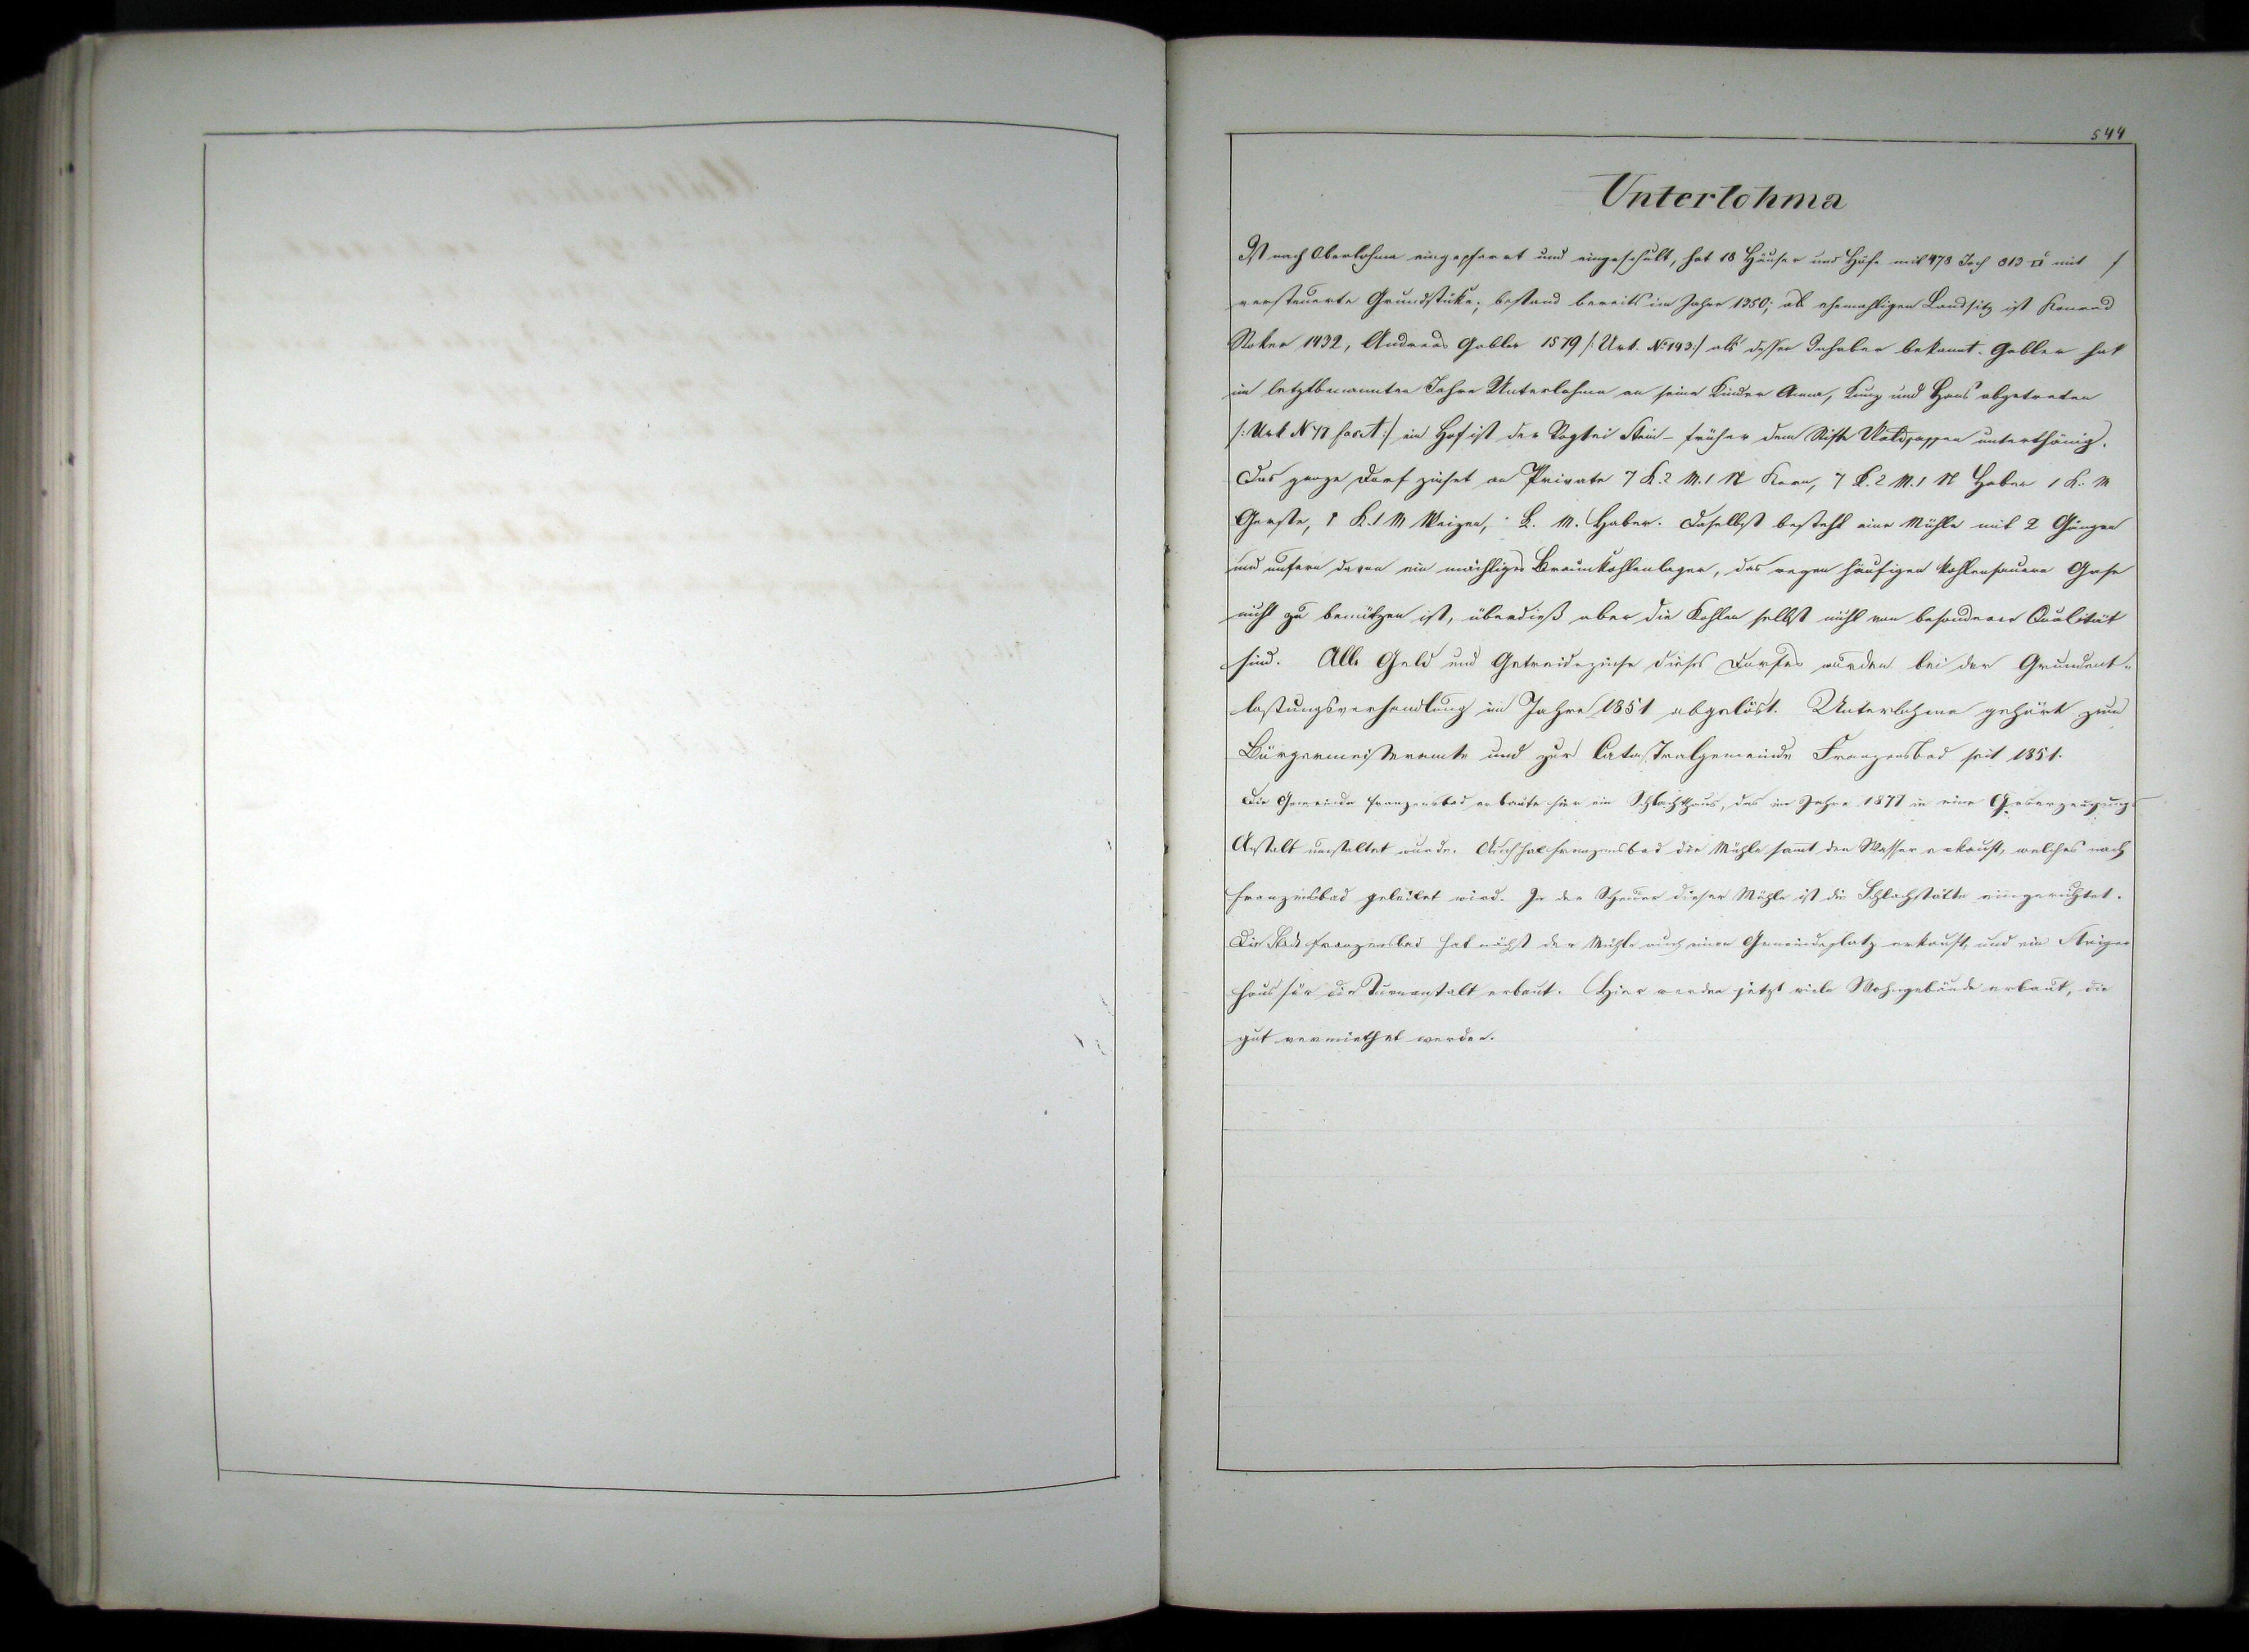 544
Unterlohma
Ist nach Oberlohma eingepfarrt und eingeschult, hat 18 Häuser und Höfe mit 478 Joch 813 □° mit f
versteuerte Grundstüke; bestand bereits im Jahre 1350; als ehemahligen Landsitz ist Konrad
1432, Andreas Gabler 1579 /: Urk. No 143 :/ als dessen Inhaber bekannt. Gabler hat
im letztbenannten Jahre Unterlohma an seine Kinder Anna, und Hans abgetreten
/: Urk N 77 fasc. A :/ ein Hof ist der Vogtei Stein – früher dem Stifte Waldsassen unterthänig.
Das ganze Dorf zinset an Private 7 K. 2 M. 1 N Korn, 7 K. 2 M. 1 N Haber 1 K. M
Gerste, 1 K. 1 M Weizen, K. M. Haber. Daselbst besteht eine Mühle mit 2 Gängen
und unfern davon ein mächtiges Braunkohlenlager, das wegen häufigen kohlensauern Gase
nicht zu benützen ist, überdieß aber die Kohlen selbst nicht von besonderer Qualität
sind. Alle Geld und Getreidezinse dieses Dorfes wurden bei der Grundent-
lastungsverhandlung im Jahre 1851 abgelöst. Unterlohma gehört zum
Bürgermeisteramte und zur Catastralgemeinde Franzensbad seit 1851.
Die Gemeinde Franzensbad erbaute hier ein Schlachthaus, das im Jahre 1877 in eine Gaserzeugungs
Anstalt umstaltet wurde. Auch hat Franzensbad die Mühle samt den Wasser erkauft, welches nach
Franzensbad geleitet wird. In der Scheuer dieser Mühle ist die Schlachstätte eingerichtet.
Die Stadt Franzensbad hat nächst der Mühle auch einen Gemeindeplatz erkauft, und ein Steiger
haus für die Turnanstalt erbaut. Hier werden jetzt viele Wohngebäude erbaut, die
gut vermiethet werden.